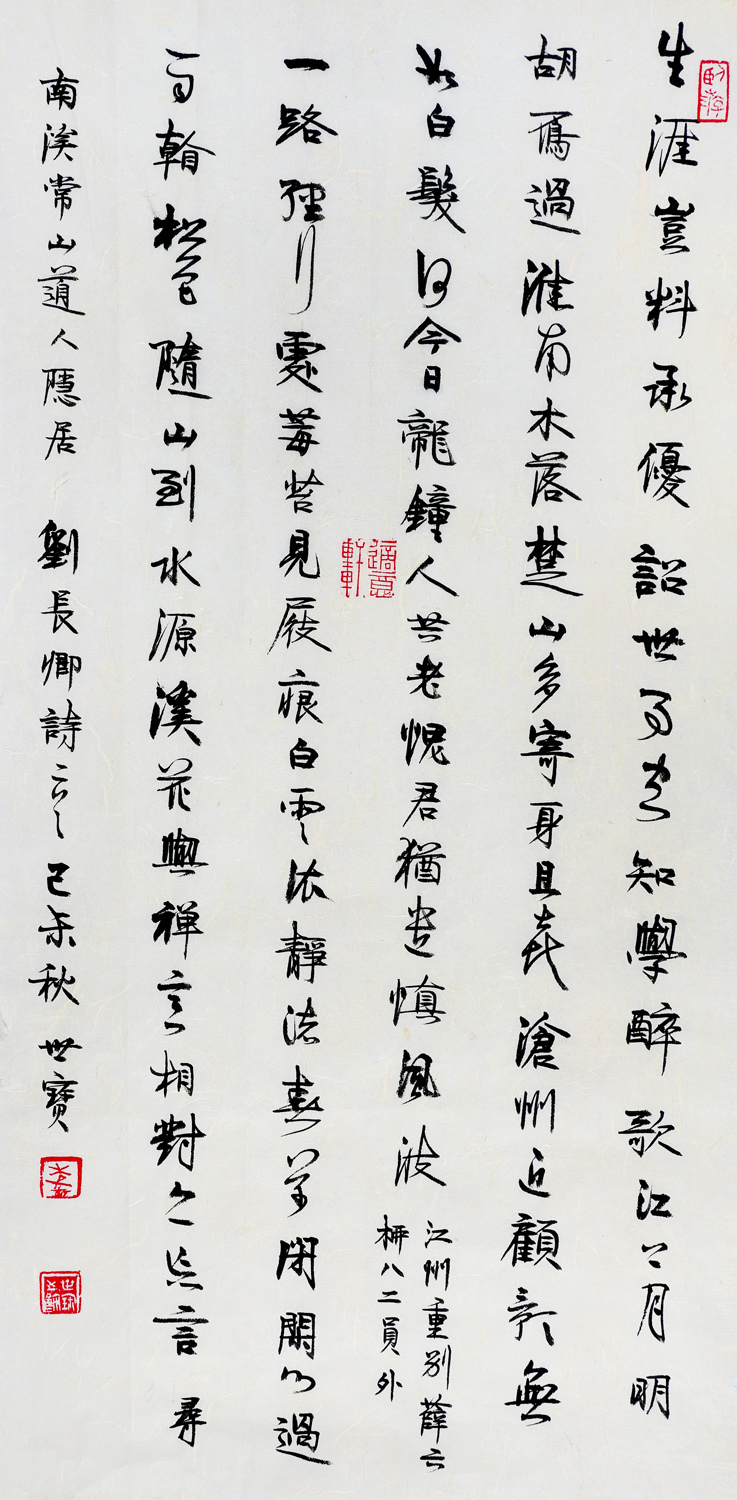 臥游
生涯豈料承優詔世事空知學醉歌江上月明
胡鴈過淮南木落楚山多寄身且喜滄州近顧影無
如白髮何今日龍鐘人共老愧君猶遣慎風波
江州重別薛六
柳八二員外
適意軒
一路經行處莓苔見屐痕白雲依靜渚春草閉閑門過
雨看松色隨山到水源溪花與禪意相對亦忘言 尋
南溪常山道人隱居 劉長卿詩二首 己未秋 世寶